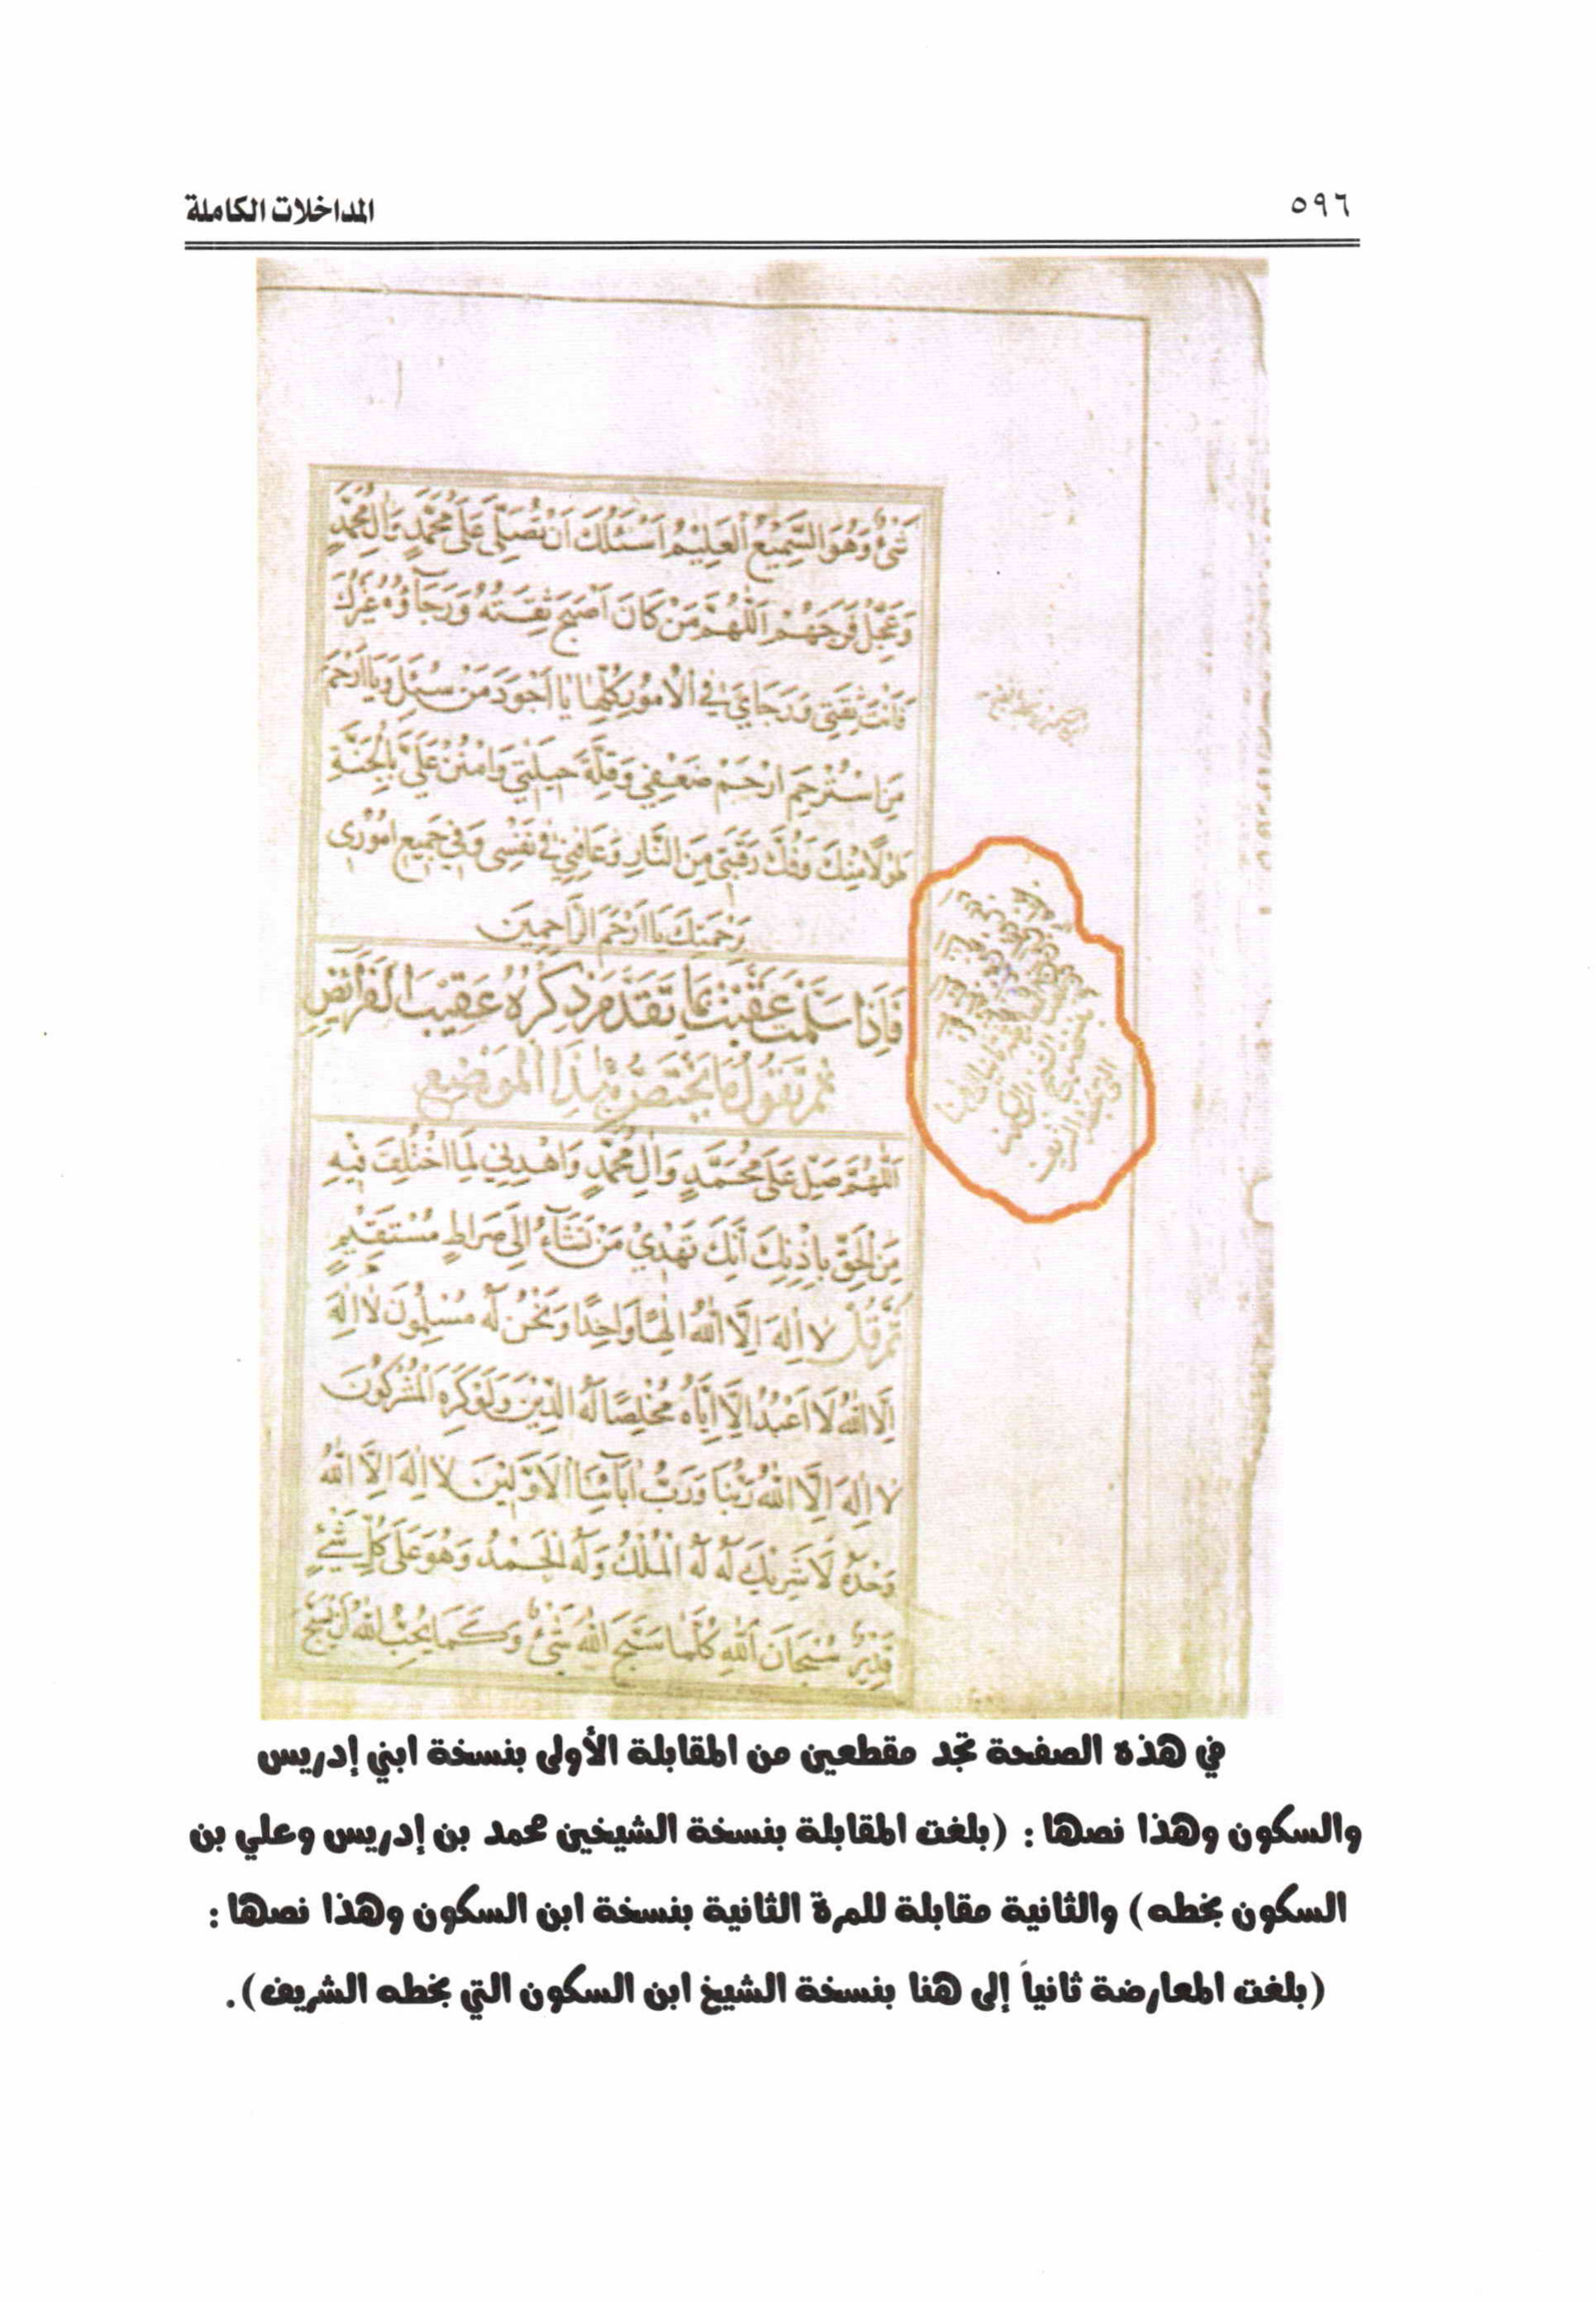 ٥٩٦
المداخلات الكاملة
شَيْءٌ وَهُوَ السَّمِيعُ الْعَلِيمُ اَسْئَلُكَ اَنْ تُصَلِّيَ عَلَى مُحَمَّدٍ وَالِ مُحَمَّدٍ
وَعَجِّلْ فَرَجَهُمْ اَللّٰهُمَّ مَنْ كَانَ اَصْبَحَ ثِقَتُهُ وَرَجَآؤُهُ غَيْرُكَ
فَاَنْتَ ثِقَتِي وَرَجَايَ فِي الْاُمُورِ كُلِّهَا يَا اَجْوَدَ مَنْ سُئِلَ وَيَا اَرْحَمَ
مَنِ اسْتُرْحِمَ ارْحَمْ ضَعْفِي وَقِلَّةَ حِيلَتِي وَامْنُنْ عَلَيَّ بِالْجَنَّةِ
طَوْلًا مِنْكَ وَفُكَّ رَقَبَتِي مِنَ النَّارِ وَعَافِنِي فِي نَفْسِي وَفِي جَمِيعِ اُمُورِي
بِرَحْمَتِكَ يَا اَرْحَمَ الرَّاحِمِينَ
فَاِذَا سَلَّمْتَ عَقَّبْتَ بِمَا تَقَدَّمَ ذِكْرُهُ عَقِيبَ الْفَرَائِضِ
ثُمَّ تَقُولُ مَا يَخْتَصُّ بِهٰذَا الْمَوْضِعِ
اَللّٰهُمَّ صَلِّ عَلَى مُحَمَّدٍ وَالِ مُحَمَّدٍ وَاهْدِنِي لِمَا اخْتُلِفَ فِيهِ
مِنَ الْحَقِّ بِاِذْنِكَ اِنَّكَ تَهْدِي مَنْ تَشَآءُ اِلَى صِرَاطٍ مُسْتَقِيمٍ
ثُمَّ قُلْ لَا اِلٰهَ اِلَّا اللّٰهُ اِلٰهًا وَاحِدًا وَنَحْنُ لَهُ مُسْلِمُونَ لَا اِلٰهَ
اِلَّا اللّٰهُ لَا اَعْبُدُ اِلَّا اِيَّاهُ مُخْلِصًا لَهُ الدِّينَ وَلَوْ كَرِهَ الْمُشْرِكُونَ
لَا اِلٰهَ اِلَّا اللّٰهُ رَبُّنَا وَرَبُّ اٰبَآئِنَا الْاَوَّلِينَ لَا اِلٰهَ اِلَّا اللّٰهُ
وَحْدَهُ لَا شَرِيكَ لَهُ لَهُ الْمُلْكُ وَلَهُ الْحَمْدُ وَهُوَ عَلَى كُلِّ شَيْءٍ
قَدِيرٌ سُبْحَانَ اللّٰهِ كُلَّمَا سَبَّحَ اللّٰهَ شَيْءٌ وَكَمَا يُحِبُّ اللّٰهُ اَنْ يُسَبَّحَ
في هذه الصفحة تجد مقطعين من المقابلة الأولى بنسخة ابني إدريس
والسكون وهذا نصها : (بلغت المقابلة بنسخة الشيخين محمد بن إدريس وعلي بن
السكون بخطه) والثانية مقابلة للمرة الثانية بنسخة ابن السكون وهذا نصها :
(بلغت المعارضة ثانياً إلى هنا بنسخة الشيخ ابن السكون التي بخطه الشريف).